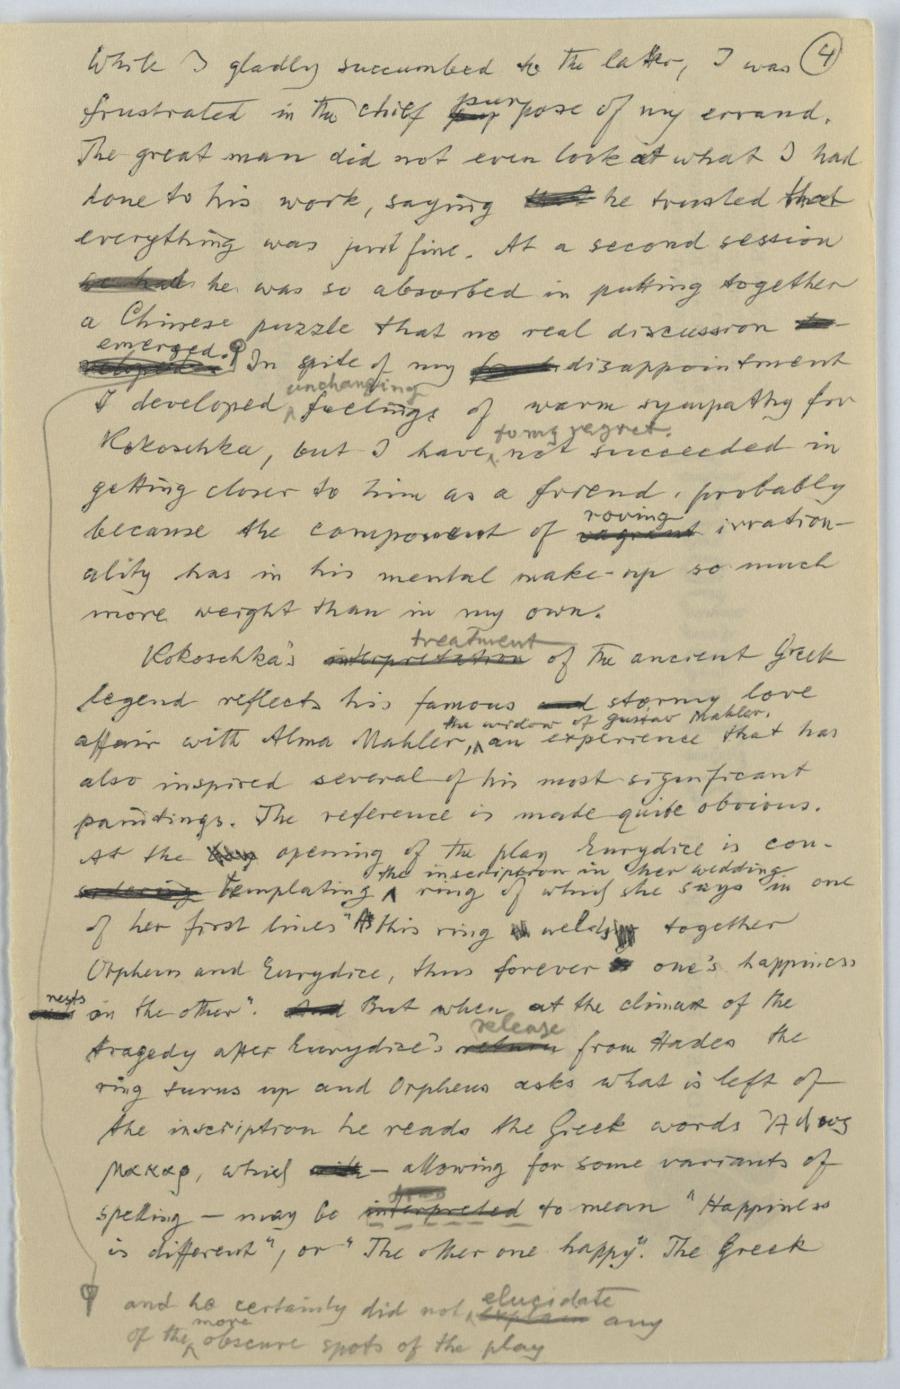 4
While I gladly succumbed to the latter, I was
frustrated in the chief purpose of my errand.
The great man did not even look at what I had
done to his work, saying he trusted that
everything was just fine. At a second session
he was so absorbed in putting together
a Chinese puzzle that no real discussion
emerged. In spite of my disappointment
unchanging
I developed feelings of warm sympathy for
to my regret,
Kokoschka, but I have not succeeded in
getting closer to him as a friend, probably
roving
because the component of vagrant irration-
ality has in his mental make-up so much
more weight than in my own.
treatment
Kokoschka's interpretation of the ancient Greek
legend reflects his famous and stormy love
the widow of Gustav Mahler,
affair with Alma Mahler, an experience that has
also inspired several of his most significant
paintings. The reference is made quite obvious.
At the opening of the play Eurydice is con-
the inscription in her wedding
templating ring of which she says in one
of her first lines "As this ring welds together
Orpheus and Eurydice, thus forever one's happiness
rests
in the other". And But when at the climax of the
release
tragedy after Eurydice's return from Hades the
ring turns up and Orpheus asks what is left of
the inscription he reads the Greek words
which allowing for some variants of
spelling — may be interpreted to mean "Happiness
is different", or "The other one happy". The Greek
elucidate
and he certainly did not explain any
more
of the obscure spots of the play